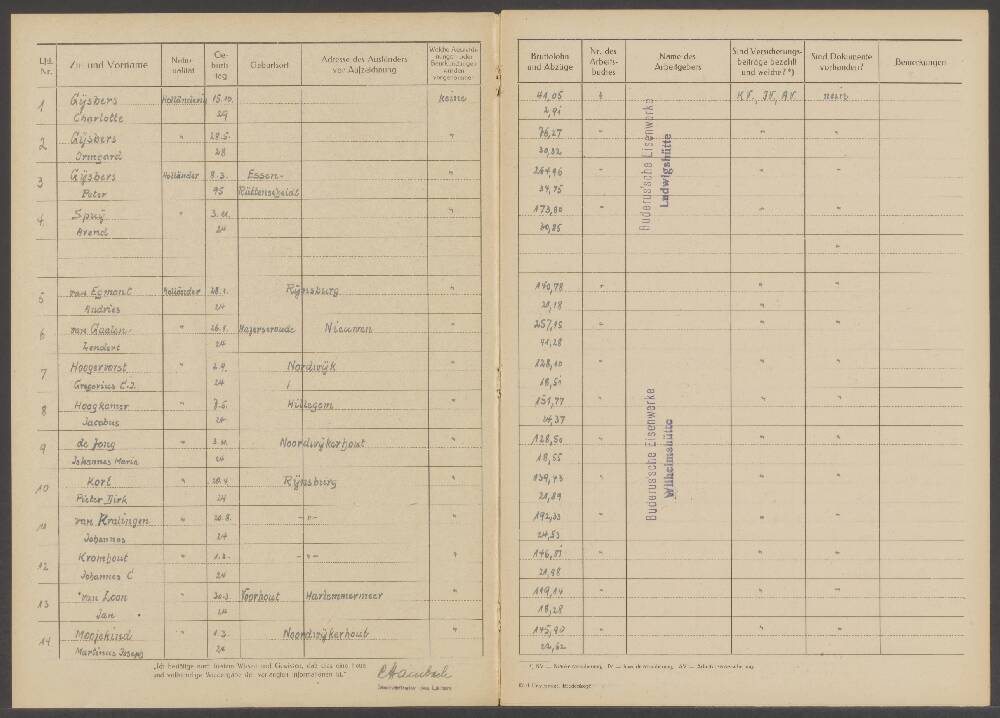 Lfd. Nr.
Zu- und Vorname
Natio- nalität
Ge- burts- tag
Geburtsort
Adresse des Ausländers vor Aufzeichnung
Bruttolohn und Abzüge
Nr. des Arbeits- buches
Name des Arbeitgebers
Sind Versicherungs- beiträge bezahlt und welche? *)
Sind Dokumente vorhanden?
Bemerkungen
1 Gijsbers Holländerin 15.10. keine 41,05 KV, IV, AV nein
Charlotte 29 2,91
2 Gijsbers " 28.5. " 76,27 " "
Irmgard 28 30,32
3 Gijsbers Holländer 8.3. Essen- " 264,96 " "
Peter 95 Rüttenscheid 34,75
4. Spruij " 3.11. " 173,80 " "
Arend 24 30,85
"
5 van Egmont Holländer 28.1. Rijnsburg " 140,78 "
Andries 24 21,18 "
6 van Gaalen " 26.1. Nieuveen " 257,15 " "
Lendert 24 41,28
7 Hoogervorst " 2.9. Nordwijk " 128,10 " "
Gregorius C.J. 24 18,51
8 Hoogkamer " 7.5. Hillegom " 151,77 " "
Jacobus 24 24,37
9 de Jong " 3.11. Noordwijkerhout " 128,50 " "
Johannes Maria 24 18,55
10 Kort " 20.4. Rijnsburg " 139,43 " "
Pieter Dirk 24 21,89
11 van Kralingen " 20.8. -"- " 192,33 " "
Johannes 24 24,53
12 Kromhout " 1.3. -"- " 146,81 " "
Johannes C 24 21,98
13 van Loon " 30.3. Voorhout Harlemmermeer " 119,14 " "
Jan 24 18,28
14 Moojekind " 1.3. Noordwijkerhout " 145,90 " "
Martinus Joseph 24 22,62
Buderus'sche Eisenwerke
Ludwigshütte
Buderus'sche Eisenwerke
Wilhelmshütte
„Ich bestätige nach bestem Wissen und Gewissen, daß dies eine treue
und vollständige Wiedergabe der verlangten Informationen ist."
*) KV — Krankenversicherung, IV — Invalidenversicherung, AV — Arbeitslosenversicherung